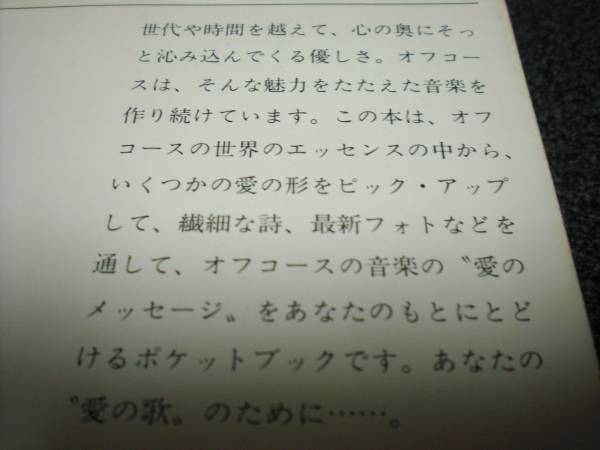 世代や時間を越えて、心の奥にそっ
と沁み込んでくる優しさ。オフコー
スは、そんな魅力をたたえた音楽を
作り続けています。この本は、オフ
コースの世界のエッセンスの中から、
いくつかの愛の形をピック・アップ
して、繊細な詩、最新フォトなどを
通して、オフコースの音楽の〝愛の
メッセージ〟をあなたのもとにとど
けるポケットブックです。あなたの
〝愛の歌〟のために……。